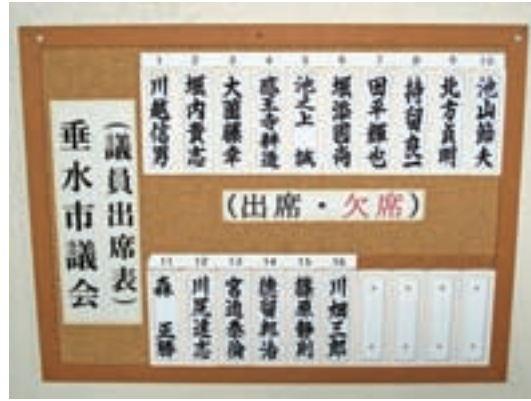 垂水市議会
(議員出席表)
1 2 3 4 5 6 7 8 9 10
川越信男
堀内貴志
大薗藤幸
感王寺耕造
池之上 誠
堀添國尚
田平輝也
持留良一
北方貞明
池山節夫
(出席・欠席)
11 12 13 14 15 16
森 正勝
川尻達志
宮迫泰倫
徳留邦治
篠原靜則
川畑三郎